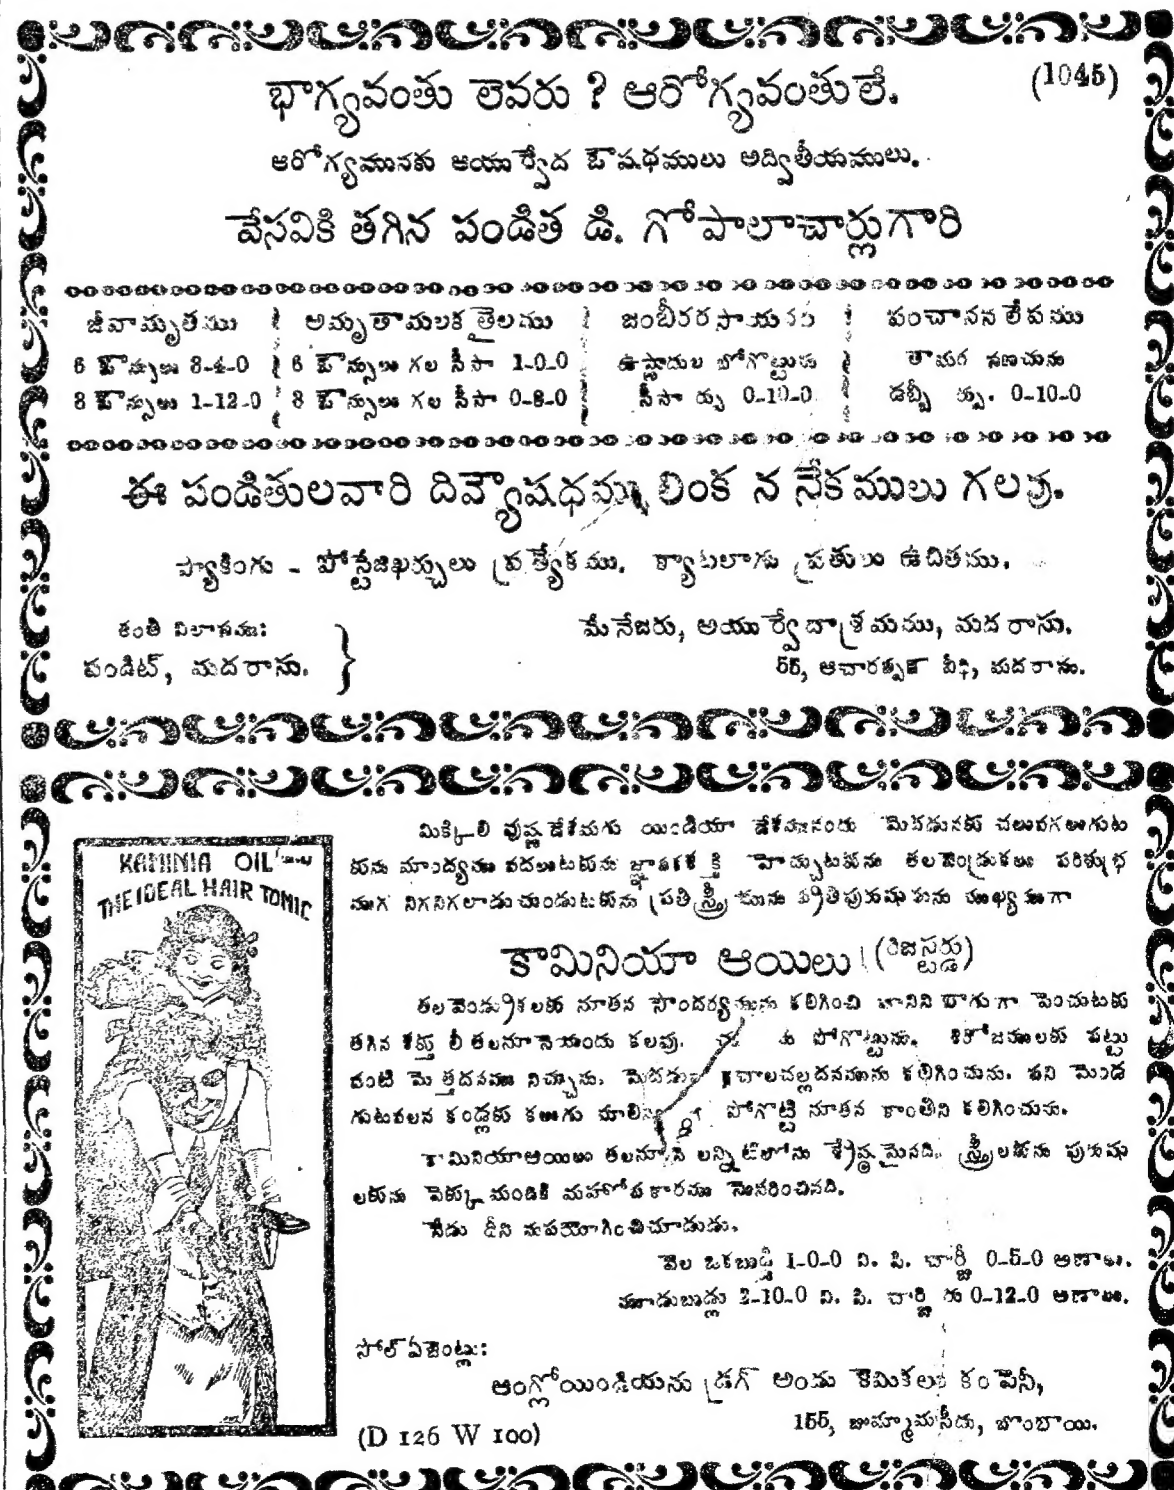 (1045)
భాగ్యవంతు లెవరు ? ఆరోగ్యవంతులే.
ఆరోగ్యమునకు ఆయుర్వేద ఔషధములు అద్వితీయములు.
వేసవికి తగిన పండిత డి. గోపాలాచార్లుగారి
జీవామృతము
6 ఔన్సులు 3-4-0
3 ఔన్సులు 1-12-0
అమృతామలక తైలము
6 ఔన్సులు గల సీసా 1-0-0
3 ఔన్సులు గల సీసా 0-8-0
జంబీరరసాయనం
ఉష్ణాదుల బోగొట్టును
సీసా 0-10-0
పంచానన లేపము
తామర నణచును
డబ్బీ రు. 0-10-0
ఈ పండితులవారి దివ్యౌషధమ్ము లింక న నేకములు గలవు.
ప్యాకింగు - పోస్టేజిఖర్చులు ప్రత్యేకము. క్యాటలాగు ప్రతులు ఉచితము.
తంతి విలాసము:
పండిట్, మదరాసు.
మేనేజరు, ఆయుర్వేదాశ్రమము, మదరాసు.
55, ఆచారప్పన్ వీధి, మదరాసు.
KAMINIA OIL
THE IDEAL HAIR TONIC
మిక్కిలి వుష్ణదేశమగు యిండియా దేశమునందు మెదడునకు చలువగలుగుట
కును మాంద్యము వదలుటకును జ్ఞాపకశక్తి హెచ్చుటకును తలవెండ్రుకలు పరిశుభ్ర
ముగ నిగనిగలాడుచుండుటకును ప్రతిస్త్రీకును ప్రతిపురుషుకును ముఖ్యముగా
కామినియా ఆయిలు (రిజిస్టర్డు)
తలవెండ్రుకలకు నూతన సౌందర్యమును కలిగించి వానిని బాగుగా పెంచుటకు
తగిన శక్తు లీ తలనూనెయందు కలవు. పోగొట్టును. శిరోజములకు పట్టు
వంటి మెత్తదనము నిచ్చును. చాలచల్లదనమును కలిగించును. పని మెండ
గుటవలన కండ్లకు కలుగు పోగొట్టి నూతన కాంతిని కలిగించును.
కామినియాఆయిలు తలనూనె లన్నిటిలోను శ్రేష్ఠమైనది. స్త్రీలకును పురుషు
లకును పెక్కు మందికి మహోపకారము నొనరించినది.
నేడు దీని నుపయోగించిచూడుడు.
వెల ఒకబుడ్డి 1-0-0 వి. పి. చార్జీ 0-5-0 అణాలు.
మూడుబుడ్లు 2-10-0 వి. పి. చార్జీ 0-12-0 అణాలు.
సోల్ ఏజెంట్లు:
ఆంగ్లోయిండియను డ్రగ్ అండు కెమికలు కంపెనీ,
155, జుమ్మామసీదు, బొంబాయి.
(D 126 W 100)